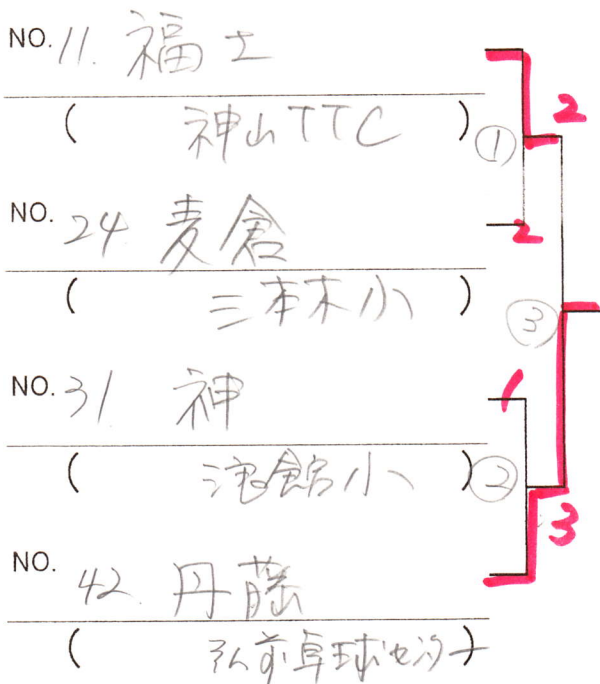 NO.11. 福士
2
( 神山TTC )
①
NO. 24 麦倉
2
( 三本木小 )
③
NO.31 神
1
( 浪館小 )
②
NO. 42. 丹藤
3
( 弘前卓球センター